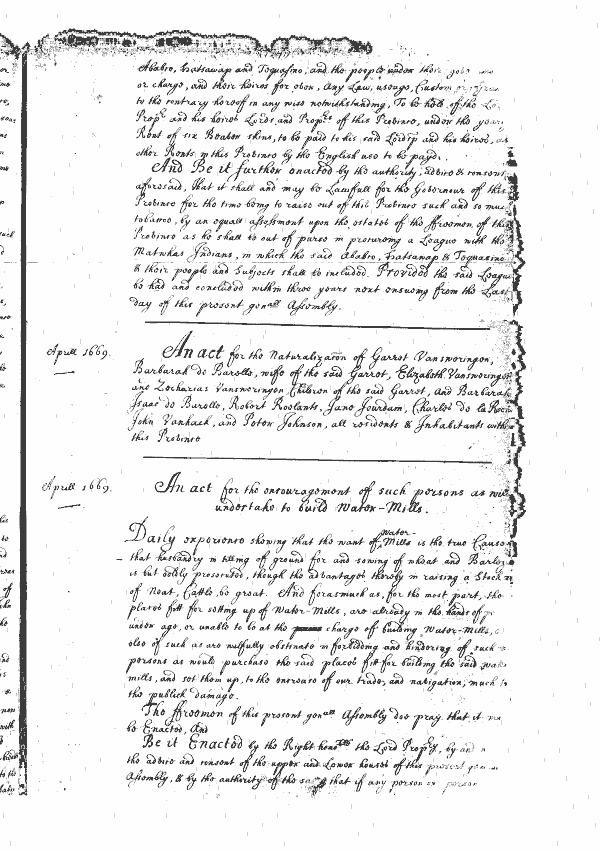 Ababco, Hatsawap and Toquasino, and the people under their
or charge, and their heires for ever, Any Law, usage, Custom
to the contrary hereof in any wise notwithstanding, To be held of the
Prop.ry and his heires Lords and Prop.rs of this Province, under the
Rent of six Beaver skins, to be paid to his said Lordsp and his heires, as
other Rents in this Province by the English use to be payd.
And Be it further enacted by the authority, advice & consent
aforesaid, that it shall and may be Lawfull for the Governour of this
Province for the time being to raise out of this Province such and so much
tobacco, by an equall assessment upon the estates of the ffreemen of this
Province as he shall be out of purse in procureing a League with the
Matwhas Indians, in which the said Ababco, Hatsawap & Toquasino
& their people and Subjects shall be included. Provided the said League
be had and concluded within three yeares next ensueing from the Last
day of this present gen.all Assembly.
Aprill 1669.
An act for the Naturalizacon of Garrot Vansweringen,
Barbarah de Barette, wife of the said Garrot, Elizabeth Vansweringen
and Zacharias Vansweringen Children of the said Garrot, and Barbarah
Isaac de Barette, Robert Roelants, Jane Jourdam, Charles de la Roch
John Vanhack, and Peter Johnson, all residents & Inhabitants within
this Province
Aprill 1669.
An act for the encouragement of such persons as will
undertake to build Water-Mills.
Daily experience shewing that the want of water-Mills is the true Cause
that husbandry in tilling of ground for and sowing of wheat and Barley
is but coldly prosecuted, though the advantages thereby in raising a Stock
of Neat, Cattle, be great. And forasmuch as, for the most part, the
places fitt for setting up of Water-Mills, are already in the hands of
under age, or unable to be at the charge of building Water-Mills,
else of such as are wilfully obstinate in forbiding and hindering of such
persons as would purchase the said places fitt for building the said water
mills, and set them up, to the encrease of our trade, and navigation, much to
the publick damage.
The ffreemen of this present gen.all Assembly doe pray that it
be Enacted, And
Be it Enacted by the Right hono.ble the Lord Prop.ry, by and
the advice and consent of the upper and Lower houses of this present
Assembly, & by the authority of the same that if any person or person